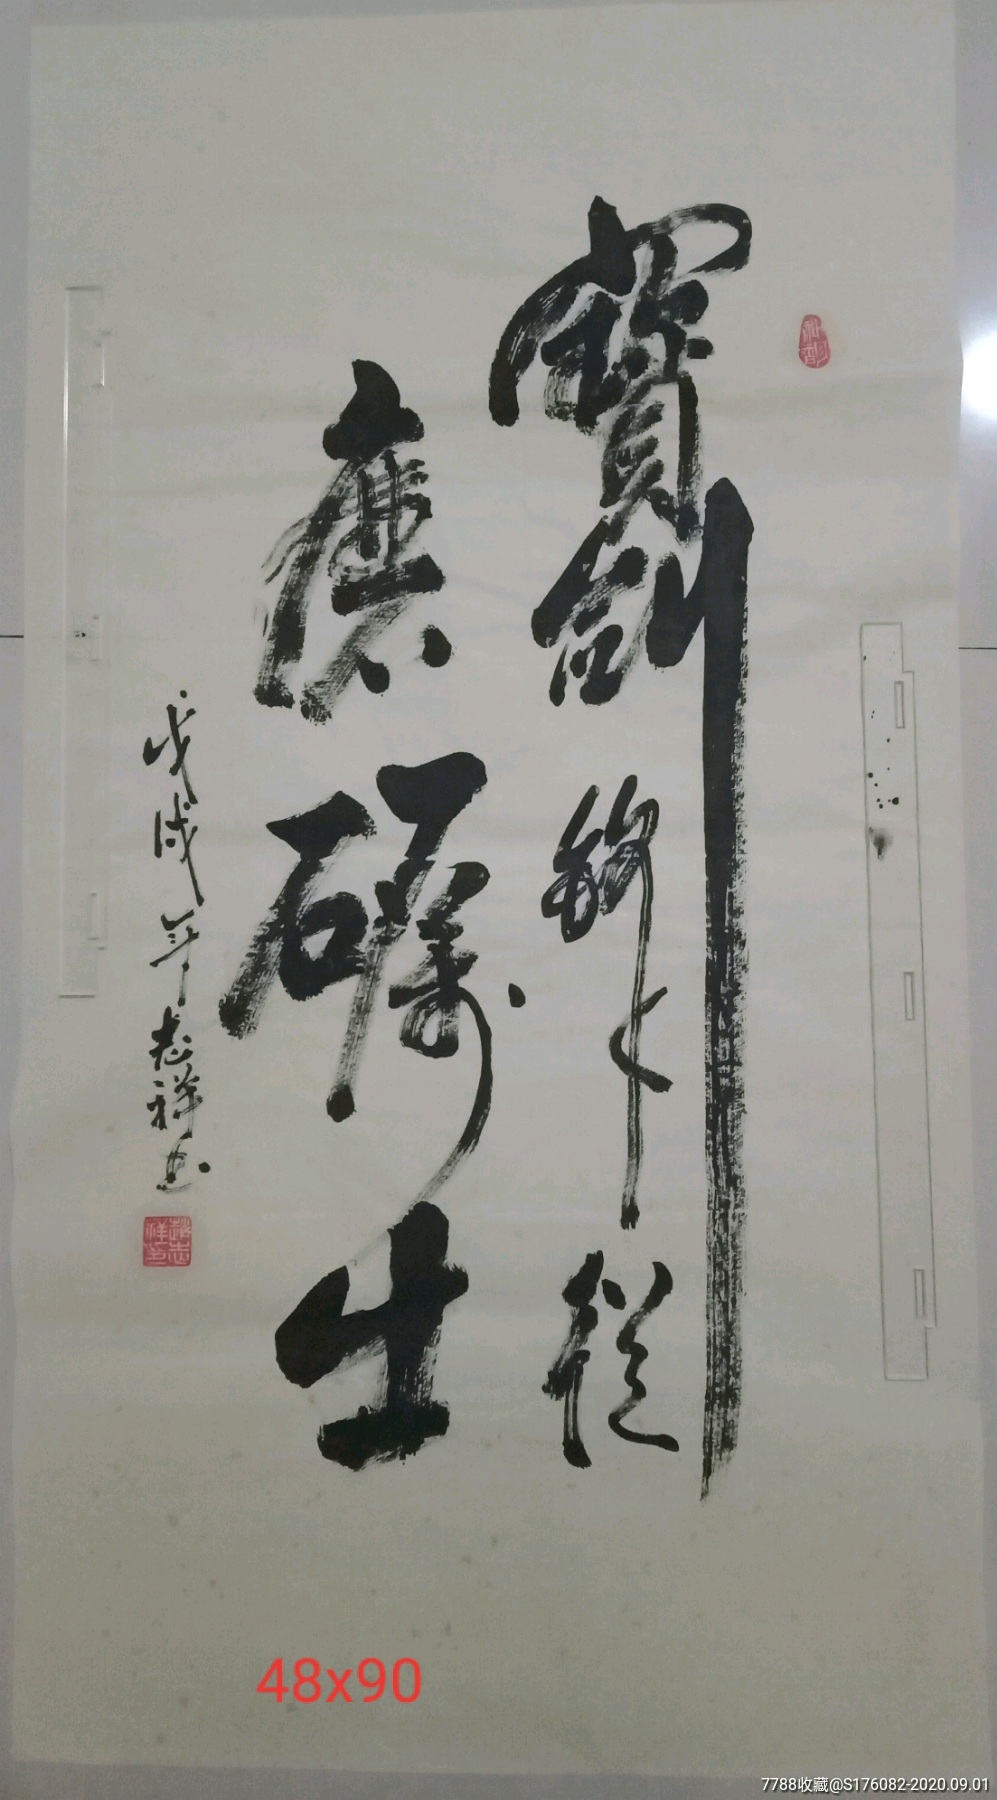 寶劍鋒从從
磨礪出
戊戌年志祥書
趙志祥印
48x90
7788收藏@S176082-2020.09.01